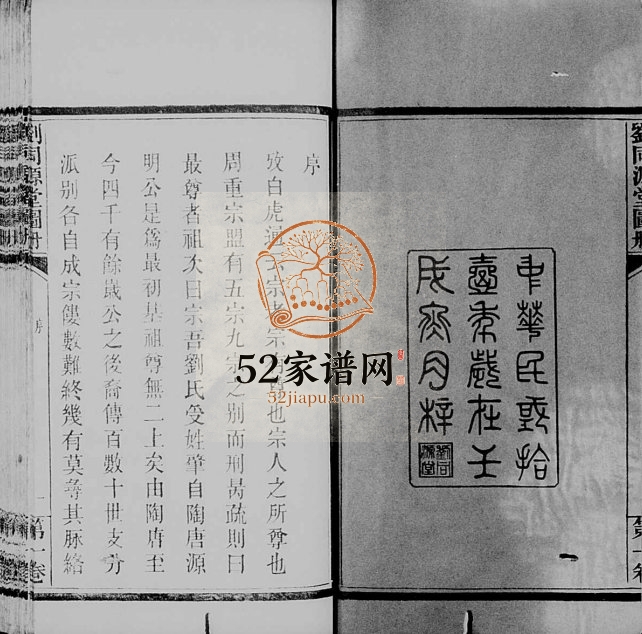 劉同源堂圖冊
第一卷
中華民國拾
壹年歲在壬
戌月梓
劉同源堂
序
攷白虎宗者宗也宗人之所尊也
周重宗盟有五宗九宗之別而刑昺疏則曰
最尊者祖次曰宗吾劉氏受姓肇自陶唐源
明公是爲最初基祖尊無二上矣由陶唐至
今四千有餘歲公之後裔傳百數十世支分
派別各自成宗僂數難終幾有莫尋其脈絡
劉同源堂圖冊
序
一
第一卷
52家谱网
52jiapu.com